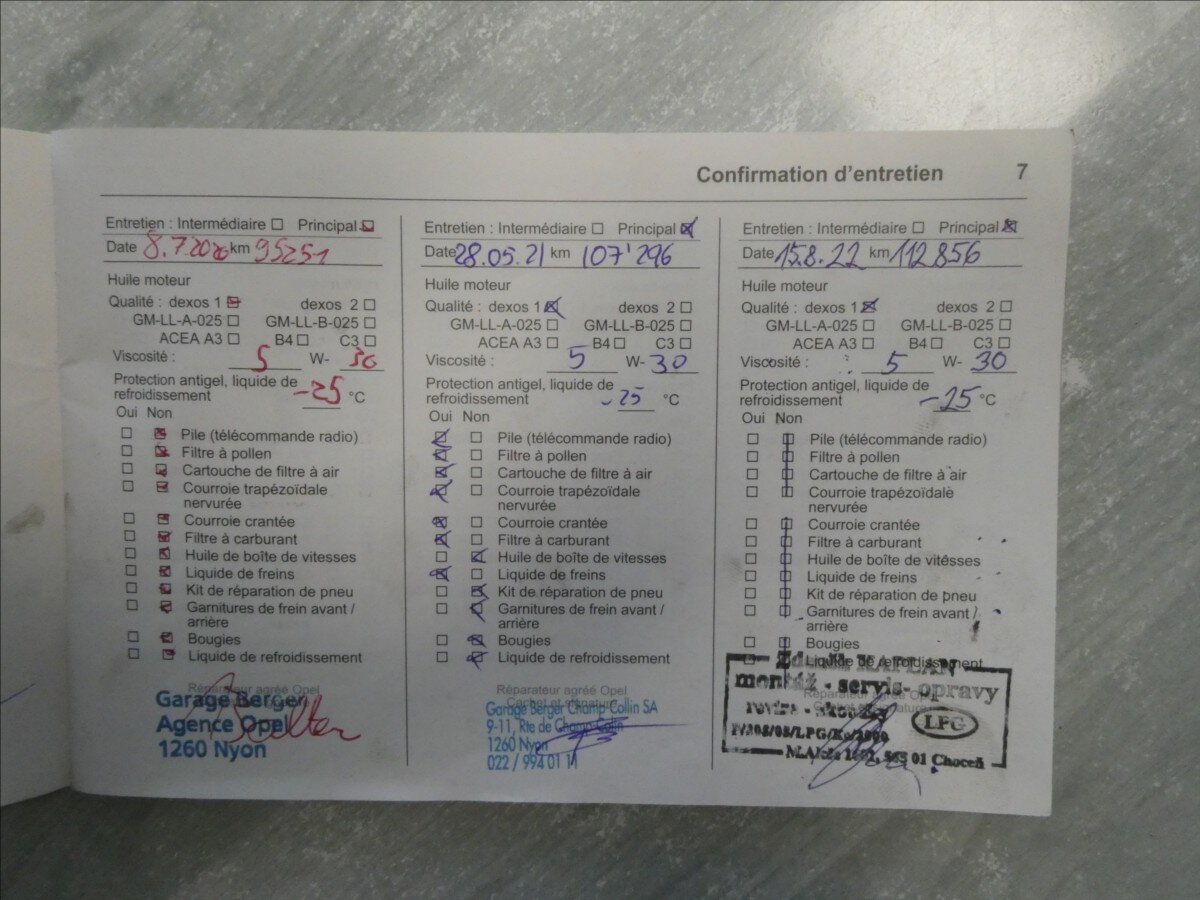 Confirmation d'entretien 7
Entretien : Intermédiaire ☐ Principal ☒
Date 8.7.2020 km 95251
Huile moteur
Qualité : dexos 1 ☒ dexos 2 ☐
GM-LL-A-025 ☐ GM-LL-B-025 ☐
ACEA A3 ☐ B4 ☐ C3 ☐
Viscosité : 5 W- 30
Protection antigel, liquide de
refroidissement -25 °C
Oui Non
☐ ☒ Pile (télécommande radio)
☐ ☒ Filtre à pollen
☐ ☒ Cartouche de filtre à air
☐ ☒ Courroie trapézoïdale
nervurée
☐ ☒ Courroie crantée
☐ ☒ Filtre à carburant
☐ ☒ Huile de boîte de vitesses
☐ ☒ Liquide de freins
☐ ☒ Kit de réparation de pneu
☐ ☒ Garnitures de frein avant /
arrière
☐ ☒ Bougies
☐ ☒ Liquide de refroidissement
Réparateur agréé Opel
Garage Berger
Agence Opel
1260 Nyon
Entretien : Intermédiaire ☐ Principal ☒
Date 28.05.21 km 107'296
Huile moteur
Qualité : dexos 1 ☒ dexos 2 ☐
GM-LL-A-025 ☐ GM-LL-B-025 ☐
ACEA A3 ☐ B4 ☐ C3 ☐
Viscosité : 5 W- 30
Protection antigel, liquide de
refroidissement -25 °C
Oui Non
☒ ☐ Pile (télécommande radio)
☒ ☐ Filtre à pollen
☒ ☐ Cartouche de filtre à air
☒ ☐ Courroie trapézoïdale
nervurée
☒ ☐ Courroie crantée
☒ ☐ Filtre à carburant
☐ ☒ Huile de boîte de vitesses
☒ ☐ Liquide de freins
☐ ☒ Kit de réparation de pneu
☐ ☒ Garnitures de frein avant /
arrière
☐ ☒ Bougies
☐ ☒ Liquide de refroidissement
Réparateur agréé Opel
Cachet et signature
Garage Berger Champ-Collin SA
9-11, Rte de Champ-Colin
1260 Nyon
022 / 994 01 11
Entretien : Intermédiaire ☐ Principal ☒
Date 15.8.22 km 112856
Huile moteur
Qualité : dexos 1 ☒ dexos 2 ☐
GM-LL-A-025 ☐ GM-LL-B-025 ☐
ACEA A3 ☐ B4 ☐ C3 ☐
Viscosité : 5 W- 30
Protection antigel, liquide de
refroidissement -25 °C
Oui Non
☐ ☐ Pile (télécommande radio)
☐ ☐ Filtre à pollen
☐ ☐ Cartouche de filtre à air
☐ ☐ Courroie trapézoïdale
nervurée
☐ ☐ Courroie crantée
☐ ☐ Filtre à carburant
☐ ☐ Huile de boîte de vitesses
☐ ☐ Liquide de freins
☐ ☐ Kit de réparation de pneu
☐ ☐ Garnitures de frein avant /
arrière
☐ ☐ Bougies
☐ ☐ Liquide de refroidissement
KAPLAN
montáž - servis - opravy
Réparateur agréé Opel
LPG
01 Choceň